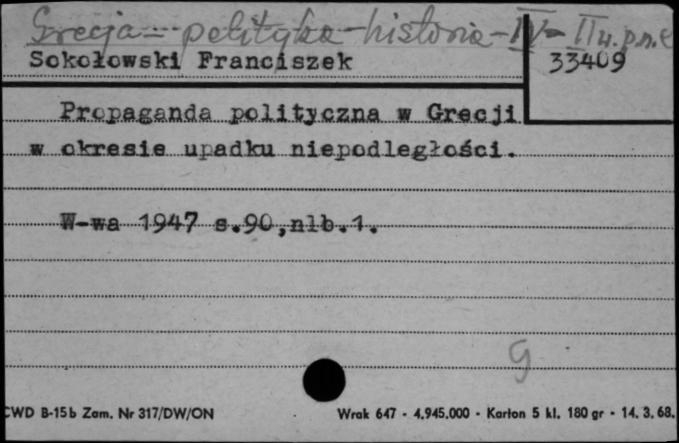 Grecja - polityka - historia - IV - II w. p.n.e
Sokołowski Franciszek
33409
Propaganda polityczna w Grecji
w okresie upadku niepodległości.
W-wa 1947 s.90,nlb.1.
g
CWD B-15b Zam. Nr 317/DW/ON
Wrak 647 - 4.945.000 - Karton 5 kl. 180 gr - 14. 3. 68.